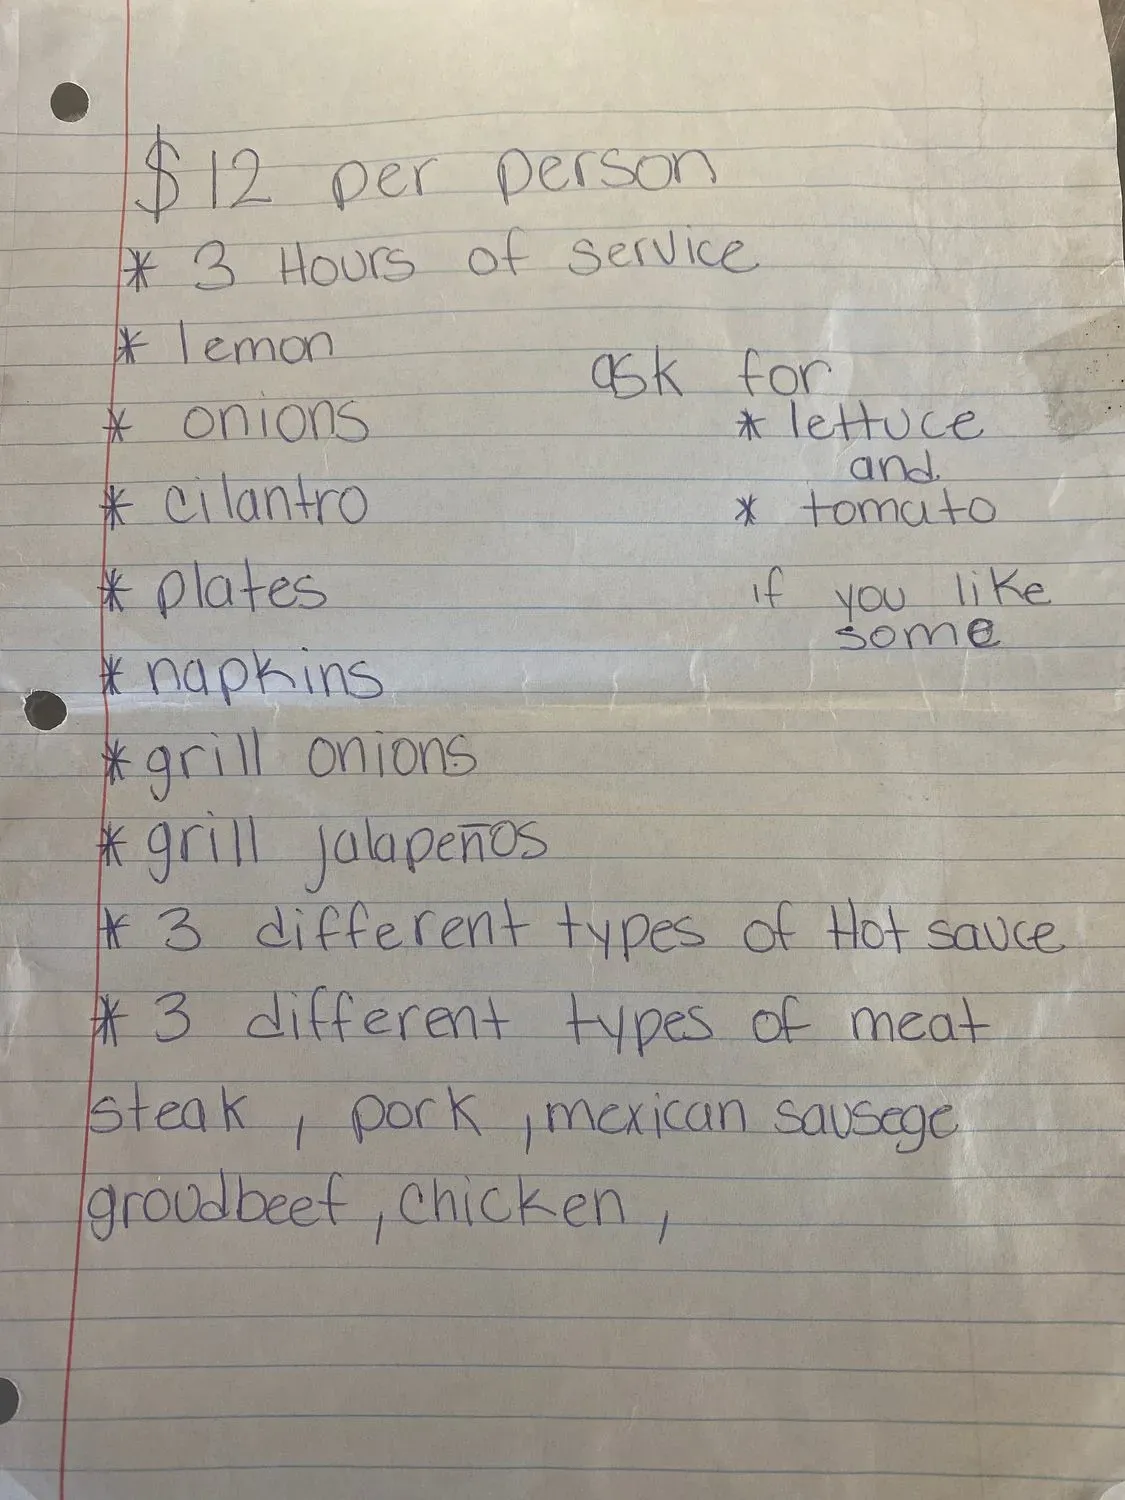 $12 per person
* 3 Hours of service
* lemon
* onions
* cilantro
* plates
* napkins
* grill onions
* grill jalapeños
* 3 different types of Hot sauce
* 3 different types of meat
steak , pork , mexican sausege
groudbeef , chicken ,
ask for
* lettuce
and
* tomato
if you like
some